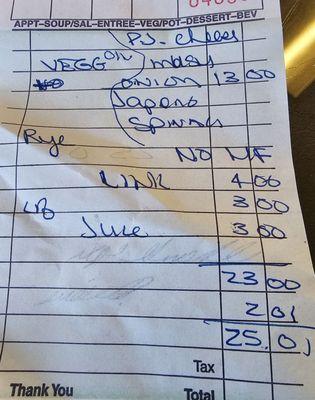 APPT–SOUP/SAL–ENTREE–VEG/POT–DESSERT–BEV
P.J. Cheese
VEGG ON
onion 13 00
Japeno
Spinach
Rye
NO MF
LINK 4 00
3 00
Juice 3 00
23 00
2 01
25.01
Tax
Thank You Total